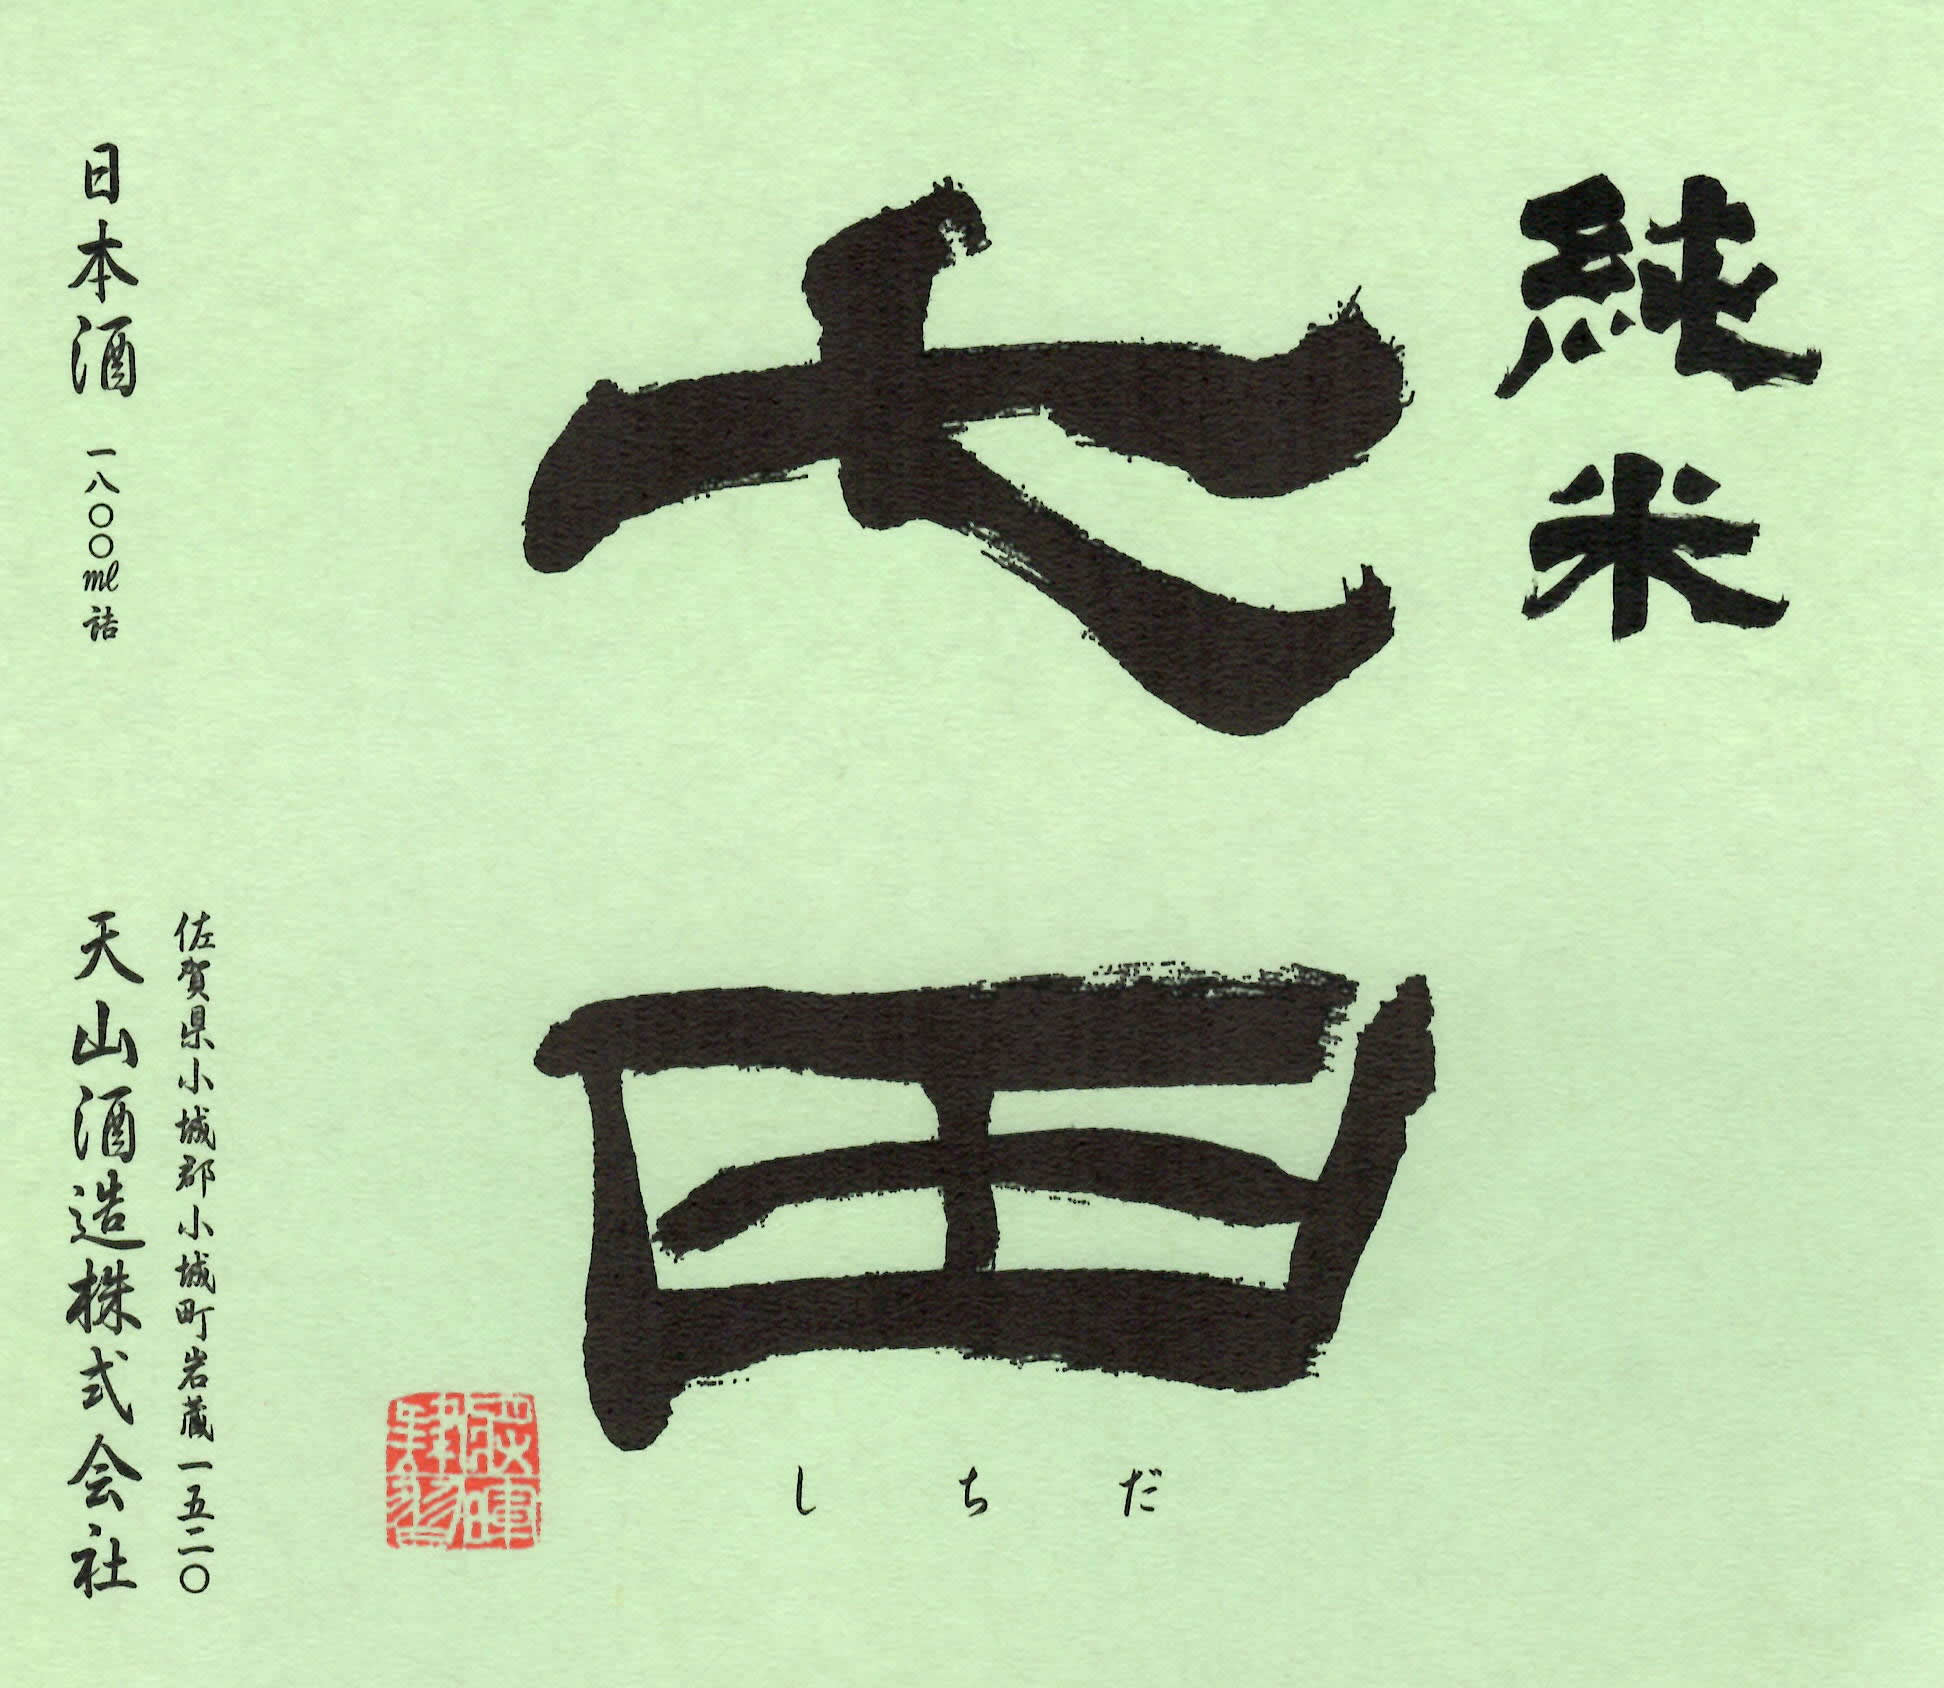 純米
七田
しちだ
佐賀県小城郡小城町岩蔵一五二〇
日本酒 一八〇〇ml詰
天山酒造株式会社